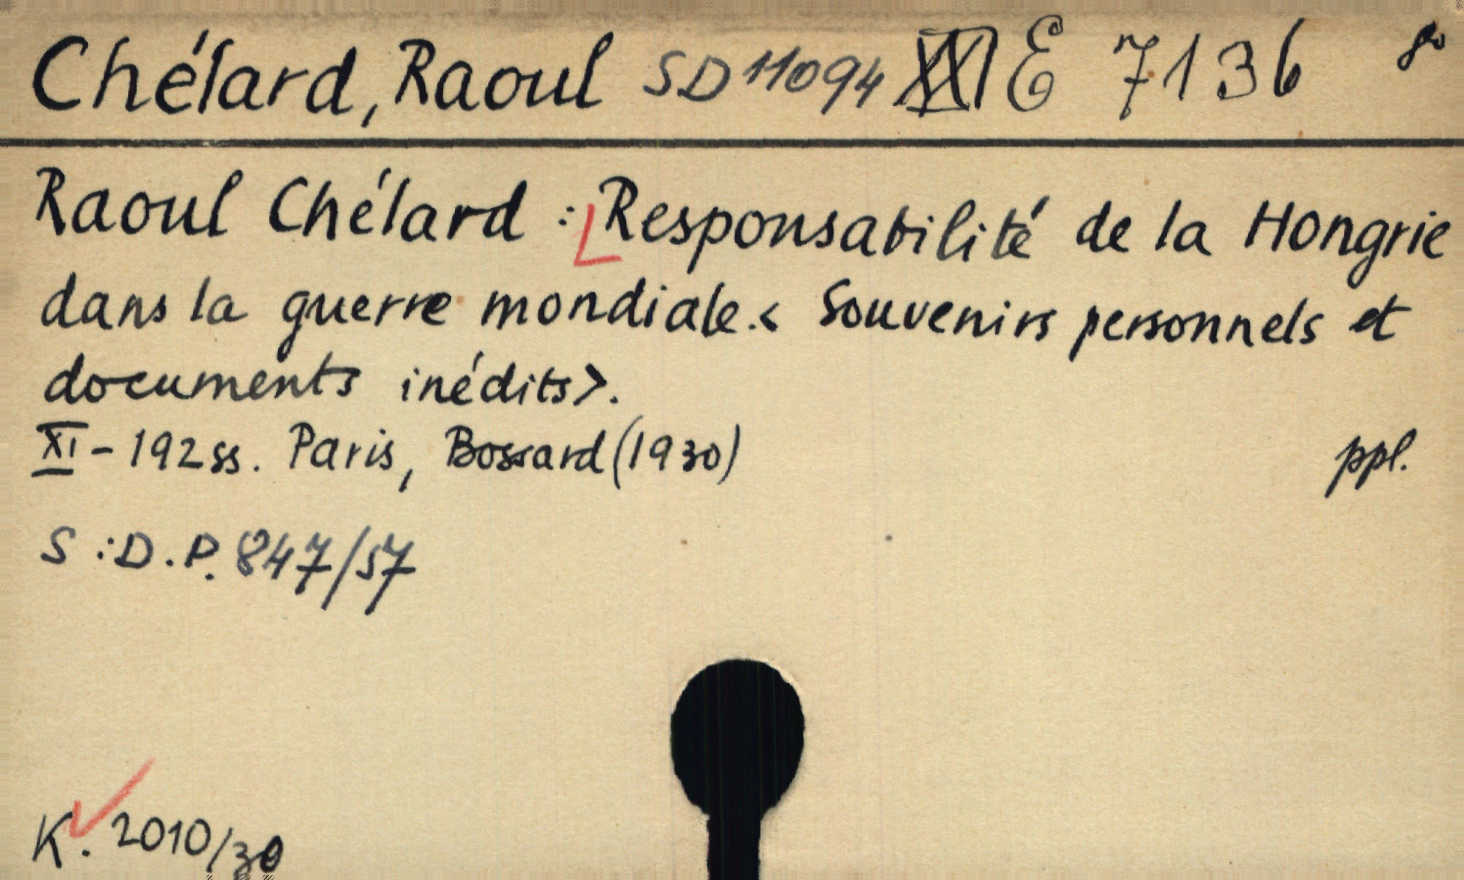 Chélard, Raoul SD 11094 XXI E 7136 8°
Raoul Chélard : Responsabilité de la Hongrie
dans la guerre mondiale.< Souvenirs personnels et
documents inédits>.
XI - 192 ss. Paris, Bossard (1930) ppl.
S : D.P. 847/57
K. 2010/30